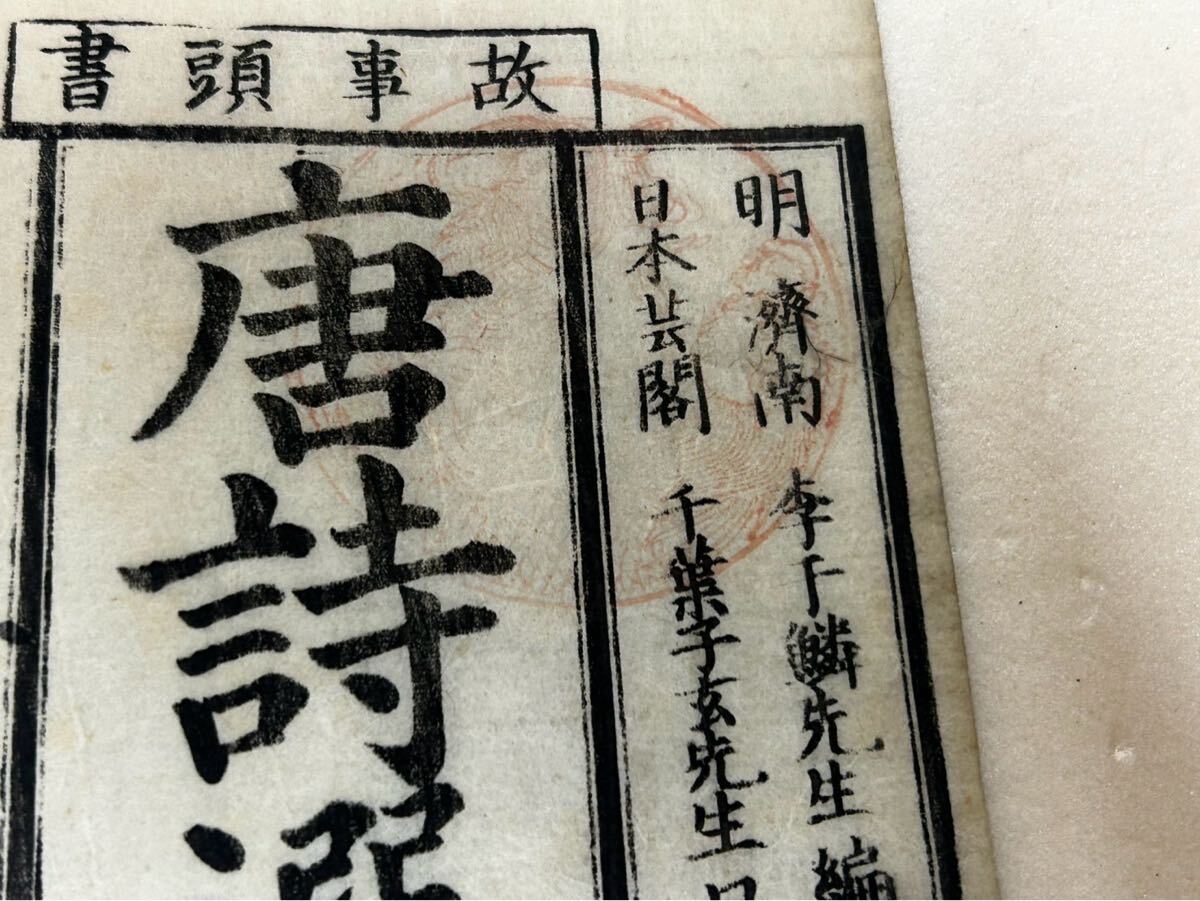 故事頭書
明 濟南 李于鱗先生編
日本芸閣 千葉子玄先生
唐詩選